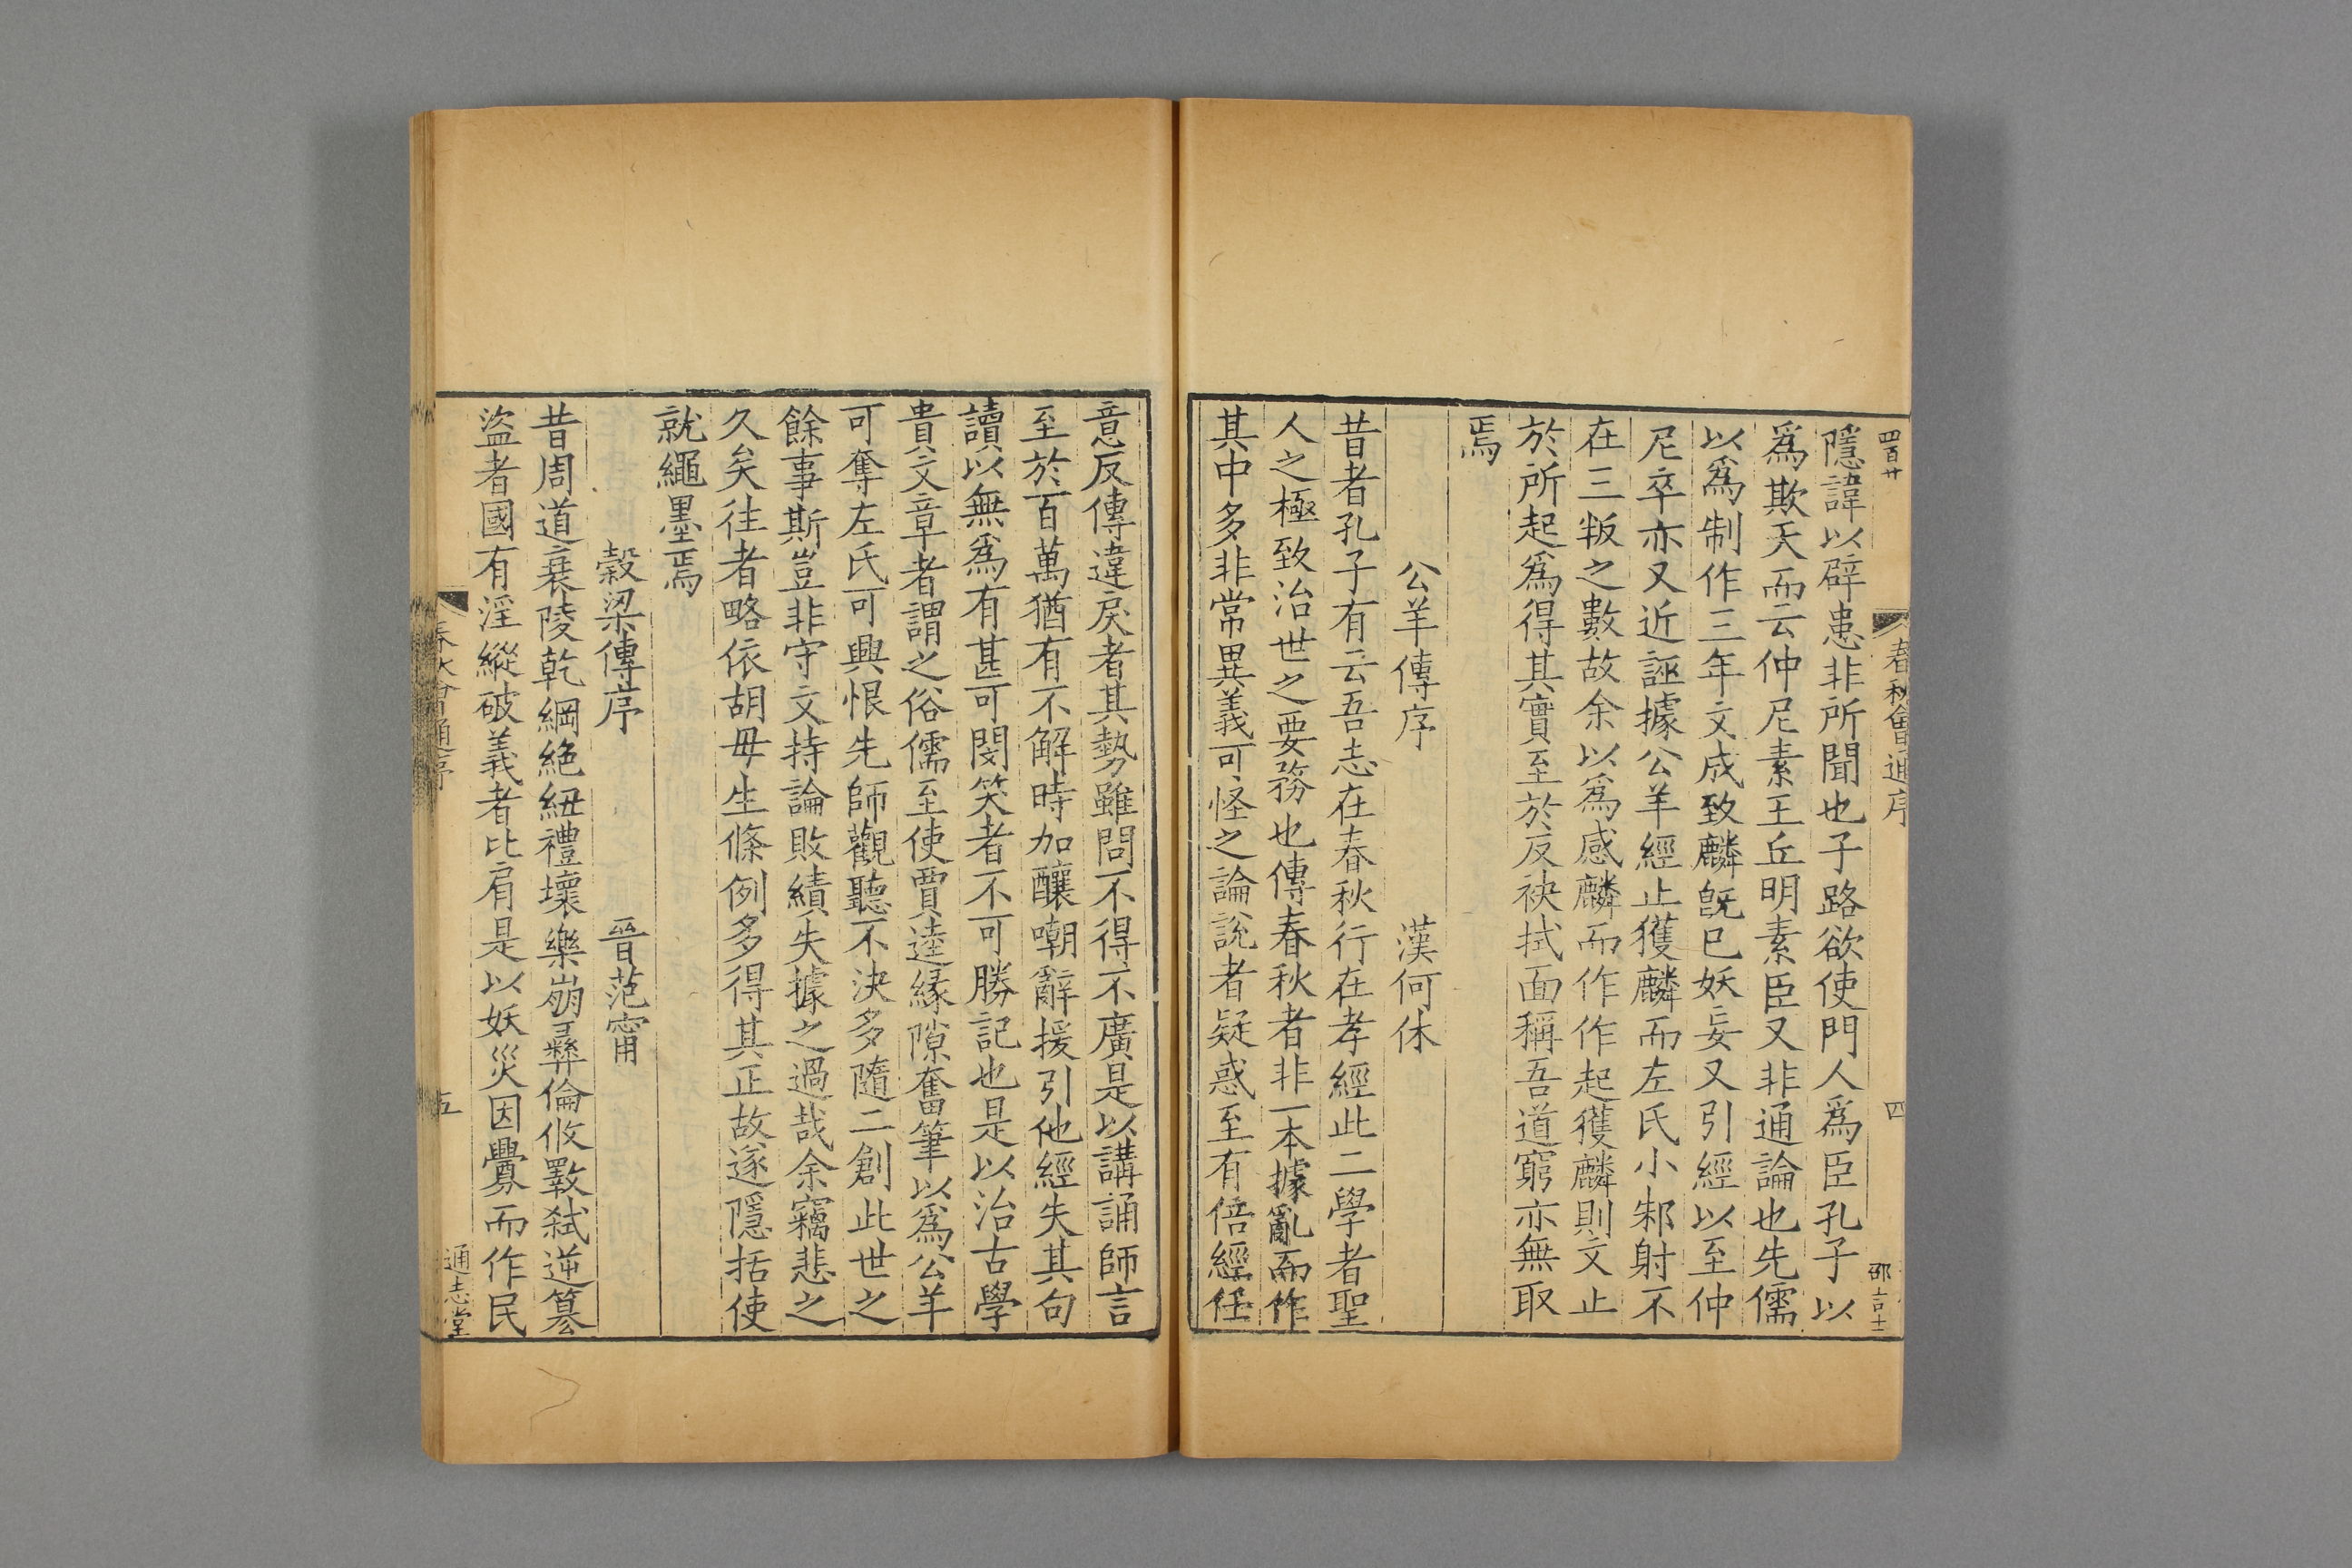 四百廿 春秋會通序 四 邵言士
隱諱以辟患非所聞也子路欲使門人爲臣孔子以
爲欺天而云仲尼素王丘明素臣又非通論也先儒
以爲制作三年文成致麟旣巳妖妄又引經以至仲
尼卒亦又近誣據公羊經止獲麟而左氏小邾射不
在三叛之數故余以爲感麟而作作起獲麟則文止
於所起爲得其實至於反袂拭面稱吾道窮亦無取
焉
公羊傳序 漢何休
昔者孔子有云吾志在春秋行在孝經此二學者聖
人之極致治世之要務也傳春秋者非一本據亂而作
其中多非常異義可怪之論說者疑惑至有倍經任
意反傳違戾者其勢雖問不得不廣是以講誦師言
至於百萬猶有不解時加釀嘲辭援引他經失其句
讀以無爲有甚可閔笑者不可勝記也是以治古學
貴文章者謂之俗儒至使賈逵緣隙奮筆以爲公羊
可奪左氏可興恨先師觀聽不決多隨二創此世之
餘事斯豈非守文持論敗績失據之過哉余竊悲之
久矣往者略依胡毋生條例多得其正故遂隱括使
就繩墨焉
榖梁傳序 晉范甯
昔周道衰陵乾綱絕紐禮壞樂崩彝倫攸斁弑逆篡
盜者國有淫縱破義者比肩是以妖災因釁而作民
春秋會通序 五 通志堂